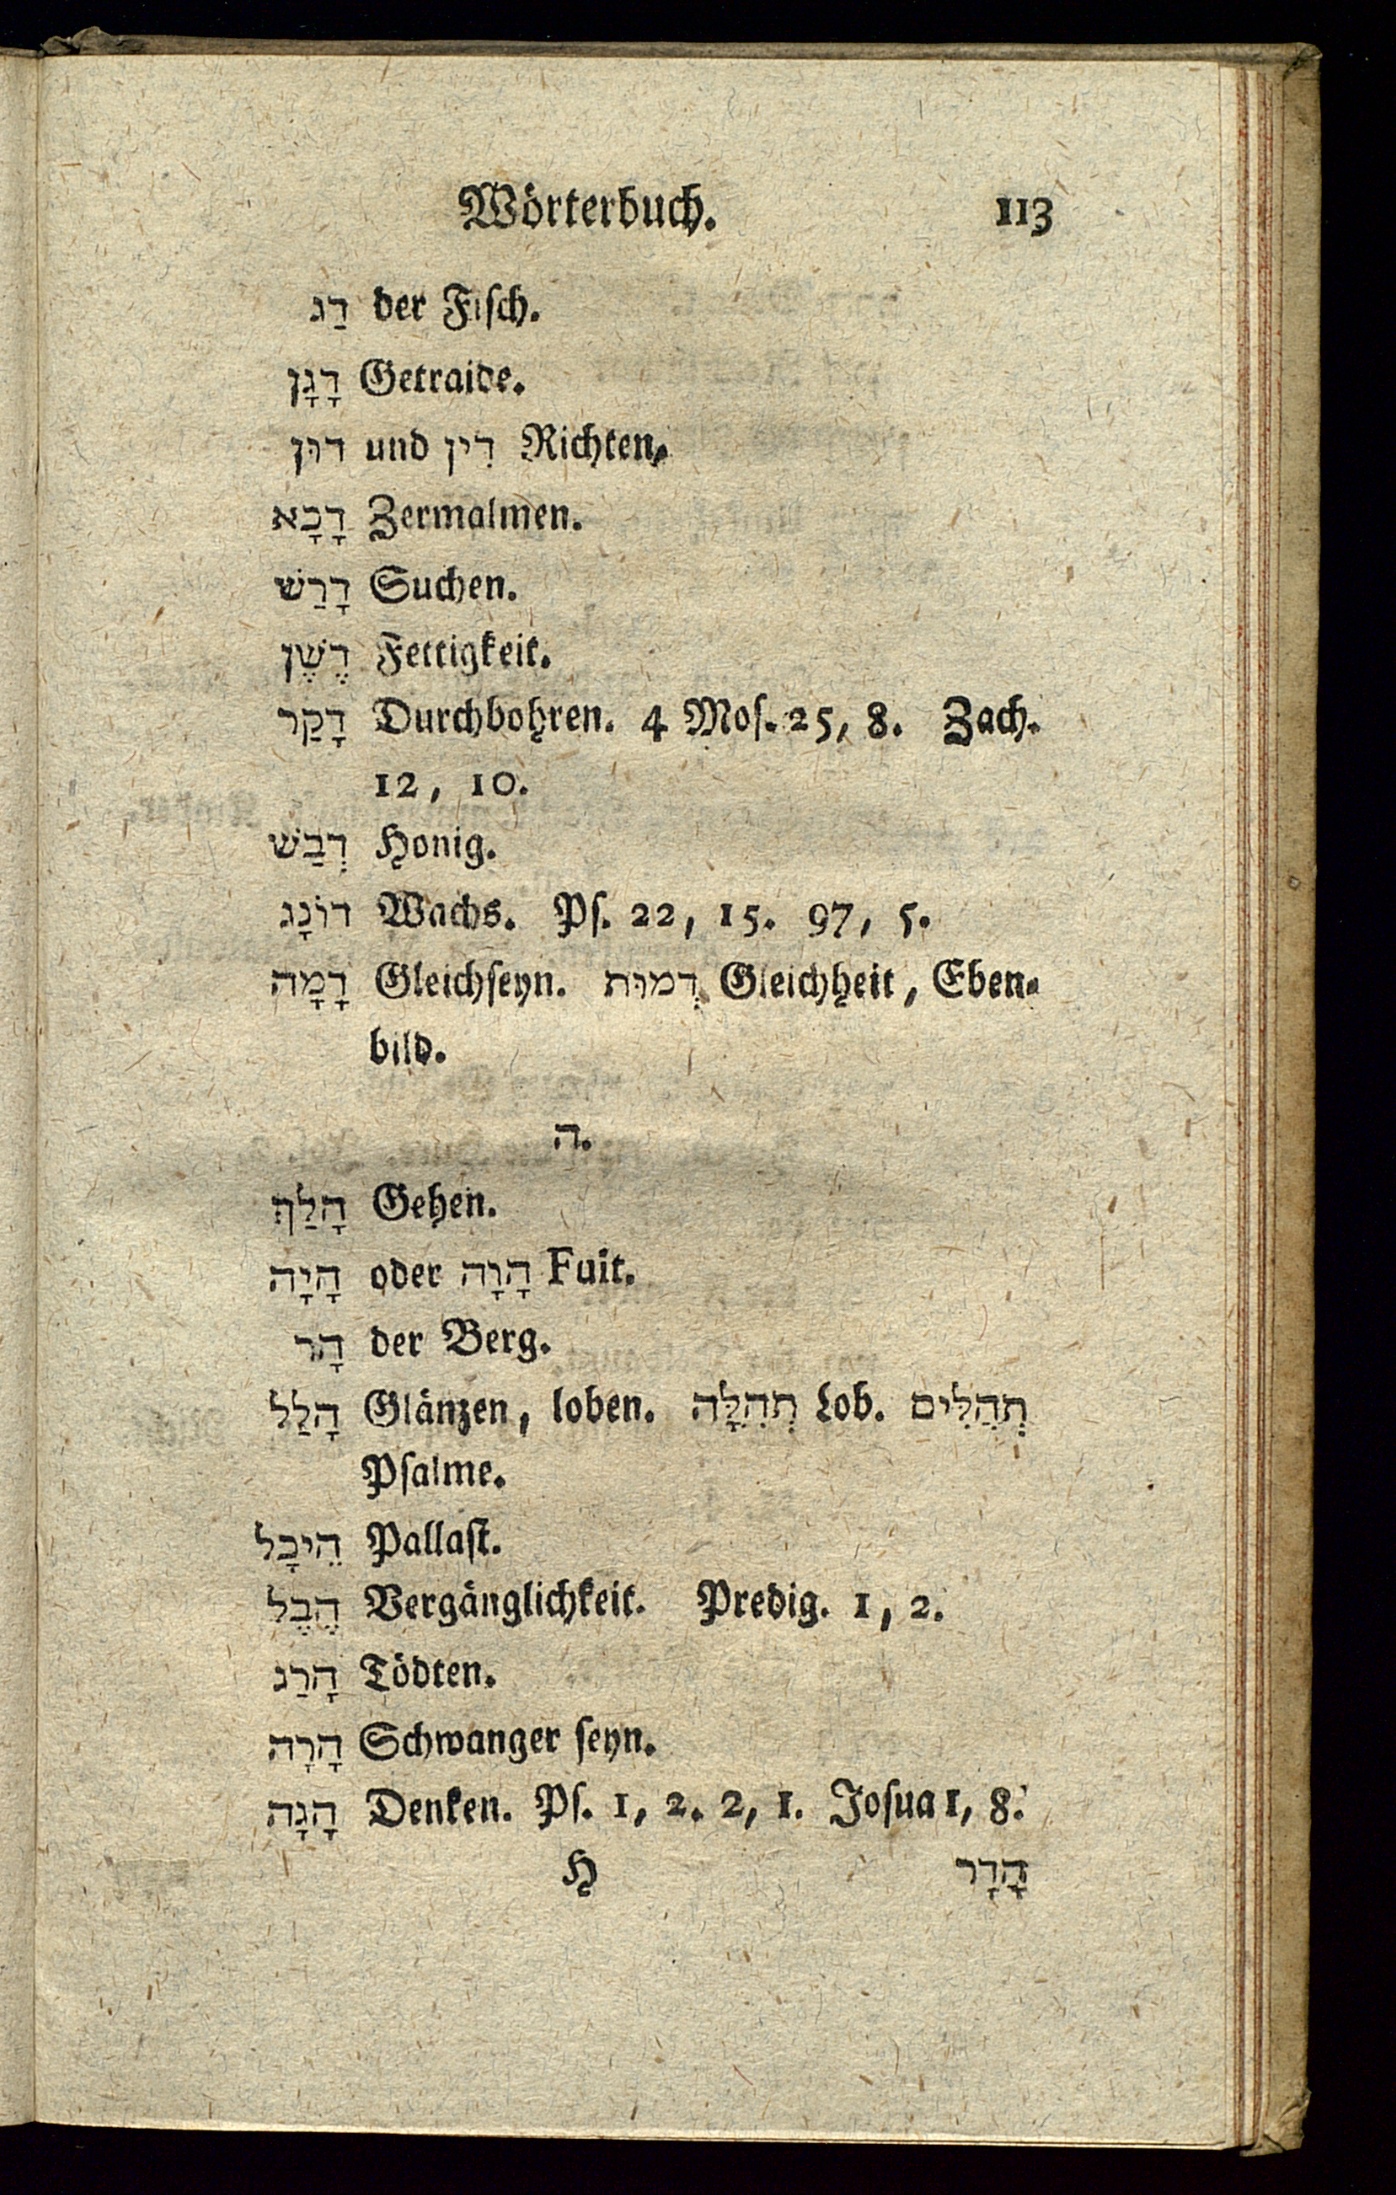 Wörterbuch. 113
דַג der Fiſch.
דָגָן Getraide.
דוּן und דִין Richten.
דָכָא Zermalmen.
דָרַשׁ Suchen.
דֶשֶׁן Fettigkeit.
דָקַר Durchbohren. 4 Moſ. 25, 8. Zach.
12, 10.
דְבַשׁ Honig.
דוֹנָג Wachs. Pſ. 22, 15. 97, 5.
דָמָה Gleichſeyn. דְמוּת Gleichheit, Eben-
bild.
ה.
הָלַךְ Gehen.
הָיָה oder הָוָה Fuit.
הָר der Berg.
הָלַל Glänzen, loben. תְהִלָּה Lob. תְהִלִּים
Pſalme.
הֵיכָל Pallaſt.
הֶבֶל Vergänglichkeit. Predig. 1, 2.
הָרַג Tödten.
הָרָה Schwanger ſeyn.
הָגָה Denken. Pſ. 1, 2. 2, 1. Joſua 1, 8.
H הָדָר